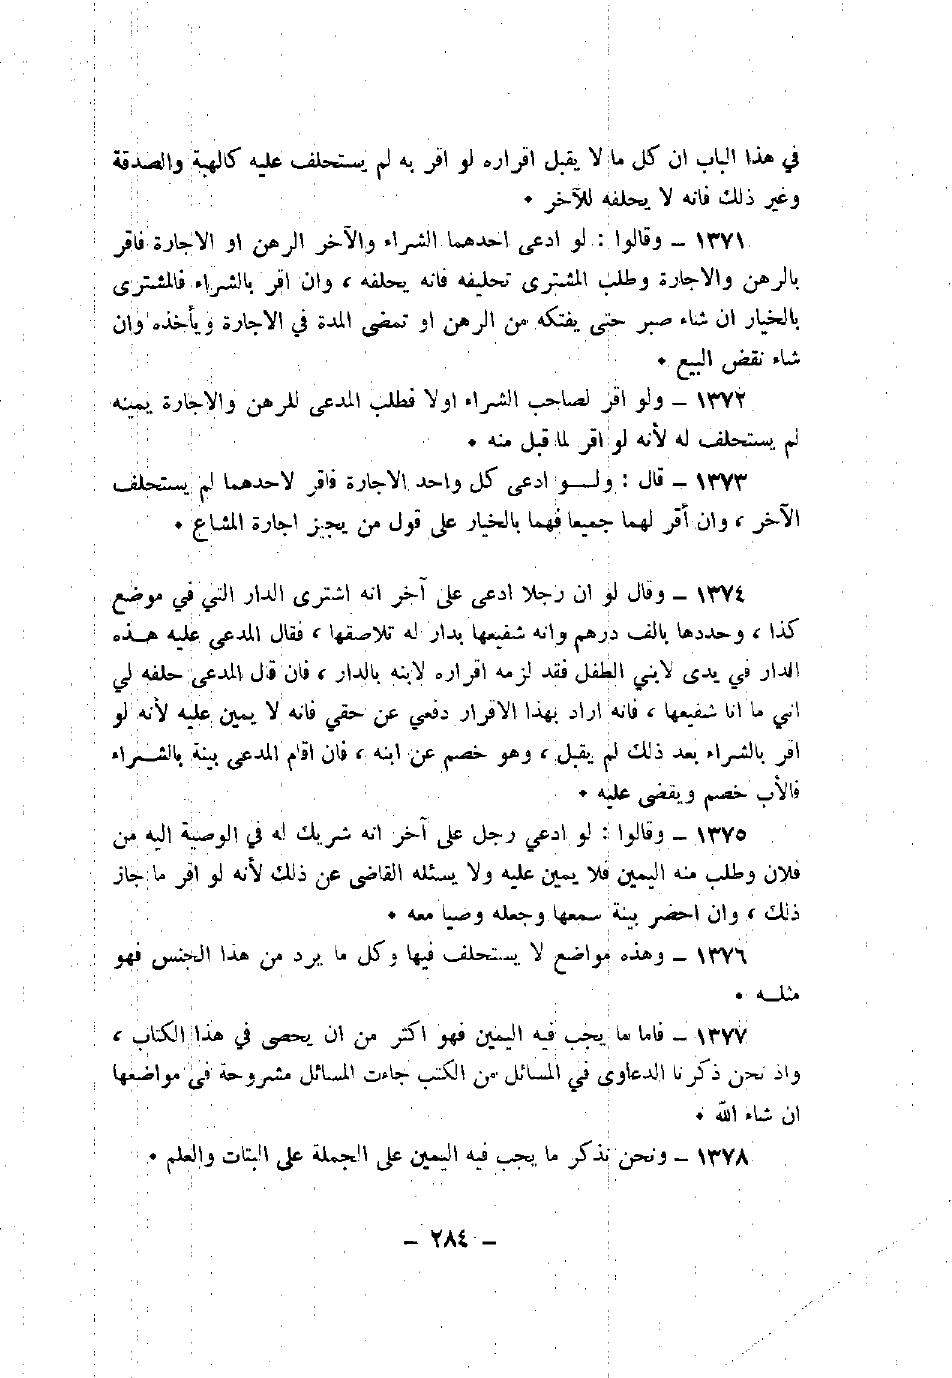 في هذا الباب ان كل ما لا يقبل اقراره لو اقر به لم يستحلف عليه كالهبة والصدقة
وغير ذلك فانه لا يحلفه للآخر •
١٣٧١ – وقالوا : لو ادعى احدهما الشراء والآخر الرهن او الاجارة فاقر
بالرهن والاجارة وطلب المشترى تحليفه فانه يحلفه ، وان اقر بالشراء فالمشترى
بالخيار ان شاء صبر حتى يفتكه من الرهن او تمضى المدة في الاجارة ويأخذه وان
شاء نقض البيع •
١٣٧٢ – ولو اقر لصاحب الشراء اولا فطلب المدعى للرهن والاجارة يمينه
لم يستحلف له لأنه لو اقر لما قبل منه •
١٣٧٣ – قال : ولــو ادعى كل واحد الاجارة فاقر لاحدهما لم يستحلف
الآخر ، وان أقر لهما جميعا فهما بالخيار على قول من يجيز اجارة المشاع •
١٣٧٤ – وقال لو ان رجلا ادعى على آخر انه اشترى الدار التي في موضع
كذا ، وحددها بالف درهم وانه شفيعها بدار له تلاصقها ، فقال المدعي عليه هــذه
الدار في يدى لابني الطفل فقد لزمه اقراره لابنه بالدار ، فان قال المدعى حلفه لي
اني ما انا شفيعها ، فانه اراد بهذا الاقرار دفعي عن حقي فانه لا يمين عليه لأنه لو
اقر بالشراء بعد ذلك لم يقبل ، وهو خصم عن ابنه ، فان اقام المدعى بينة بالشــراء
فالأب خصم ويقضى عليه •
١٣٧٥ – وقالوا : لو ادعي رجل على آخر انه شريك له في الوصية اليه من
فلان وطلب منه اليمين فلا يمين عليه ولا يسئله القاضى عن ذلك لأنه لو اقر ما جاز
ذلك ، وان احضر بينة سمعها وجعله وصيا معه •
١٣٧٦ – وهذه مواضع لا يستحلف فيها وكل ما يرد من هذا الجنس فهو
مثلــه •
١٣٧٧ – فاما ما يجب فيه اليمين فهو اكثر من ان يحصى في هذا الكتاب ،
واذ نحن ذكرنا الدعاوى في المسائل من الكتب جاءت المسائل مشروحة فى مواضعها
ان شاء الله •
١٣٧٨ – ونحن نذكر ما يجب فيه اليمين على الجملة على البتات والعلم •
– ٢٨٤ –